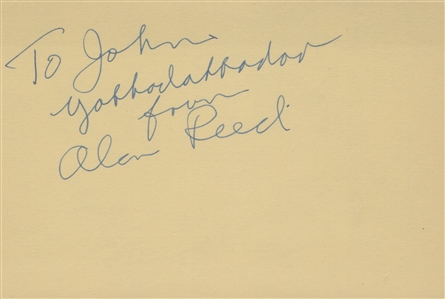 To John
Yabbadabbadoo
from
Alan Reed